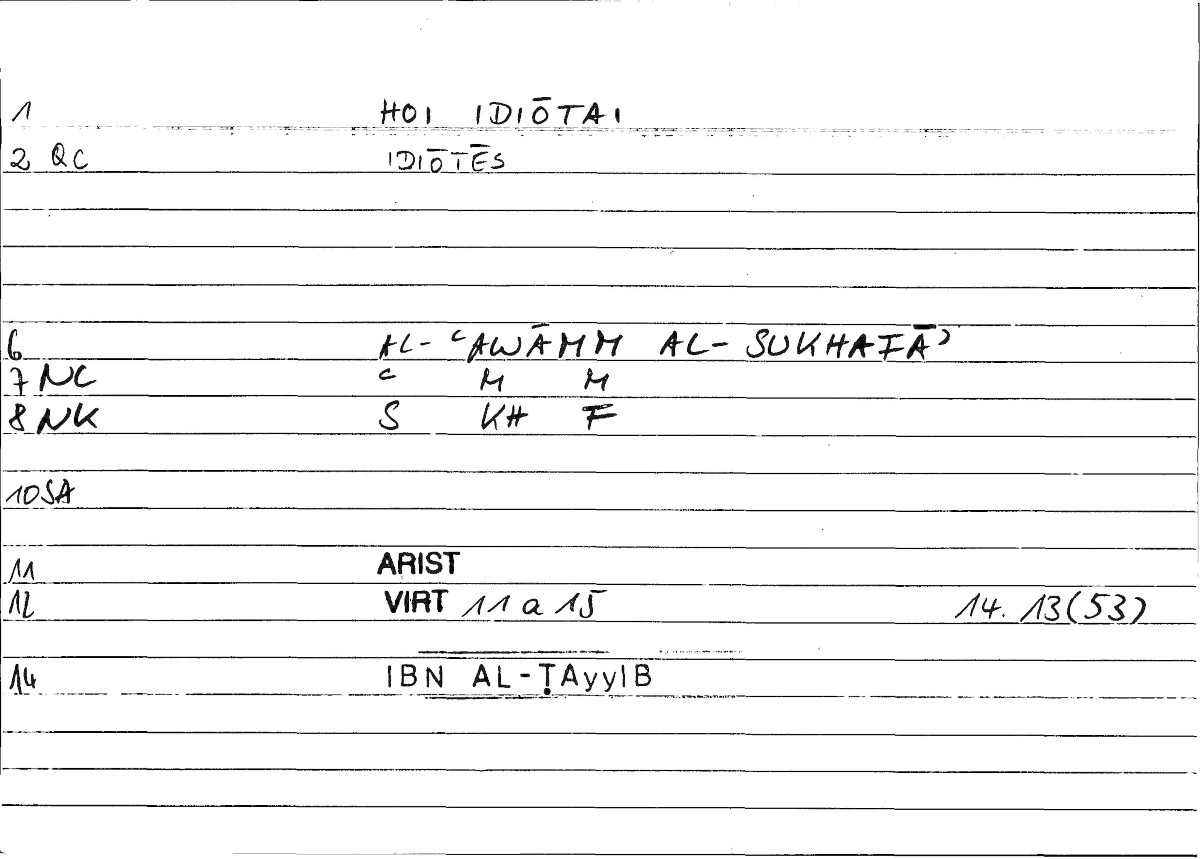 1 HOI IDIŌTAI
2 QC IDIŌTĒS
6 AL-ʿAWĀMM AL-SUKHAFĀʾ
7 NC ʿ M M
8 NK S KH F
10 SA
11 ARIST
12 VIRT 11 a 15 14. 13(53)
14 IBN AL-ṬAyyIB